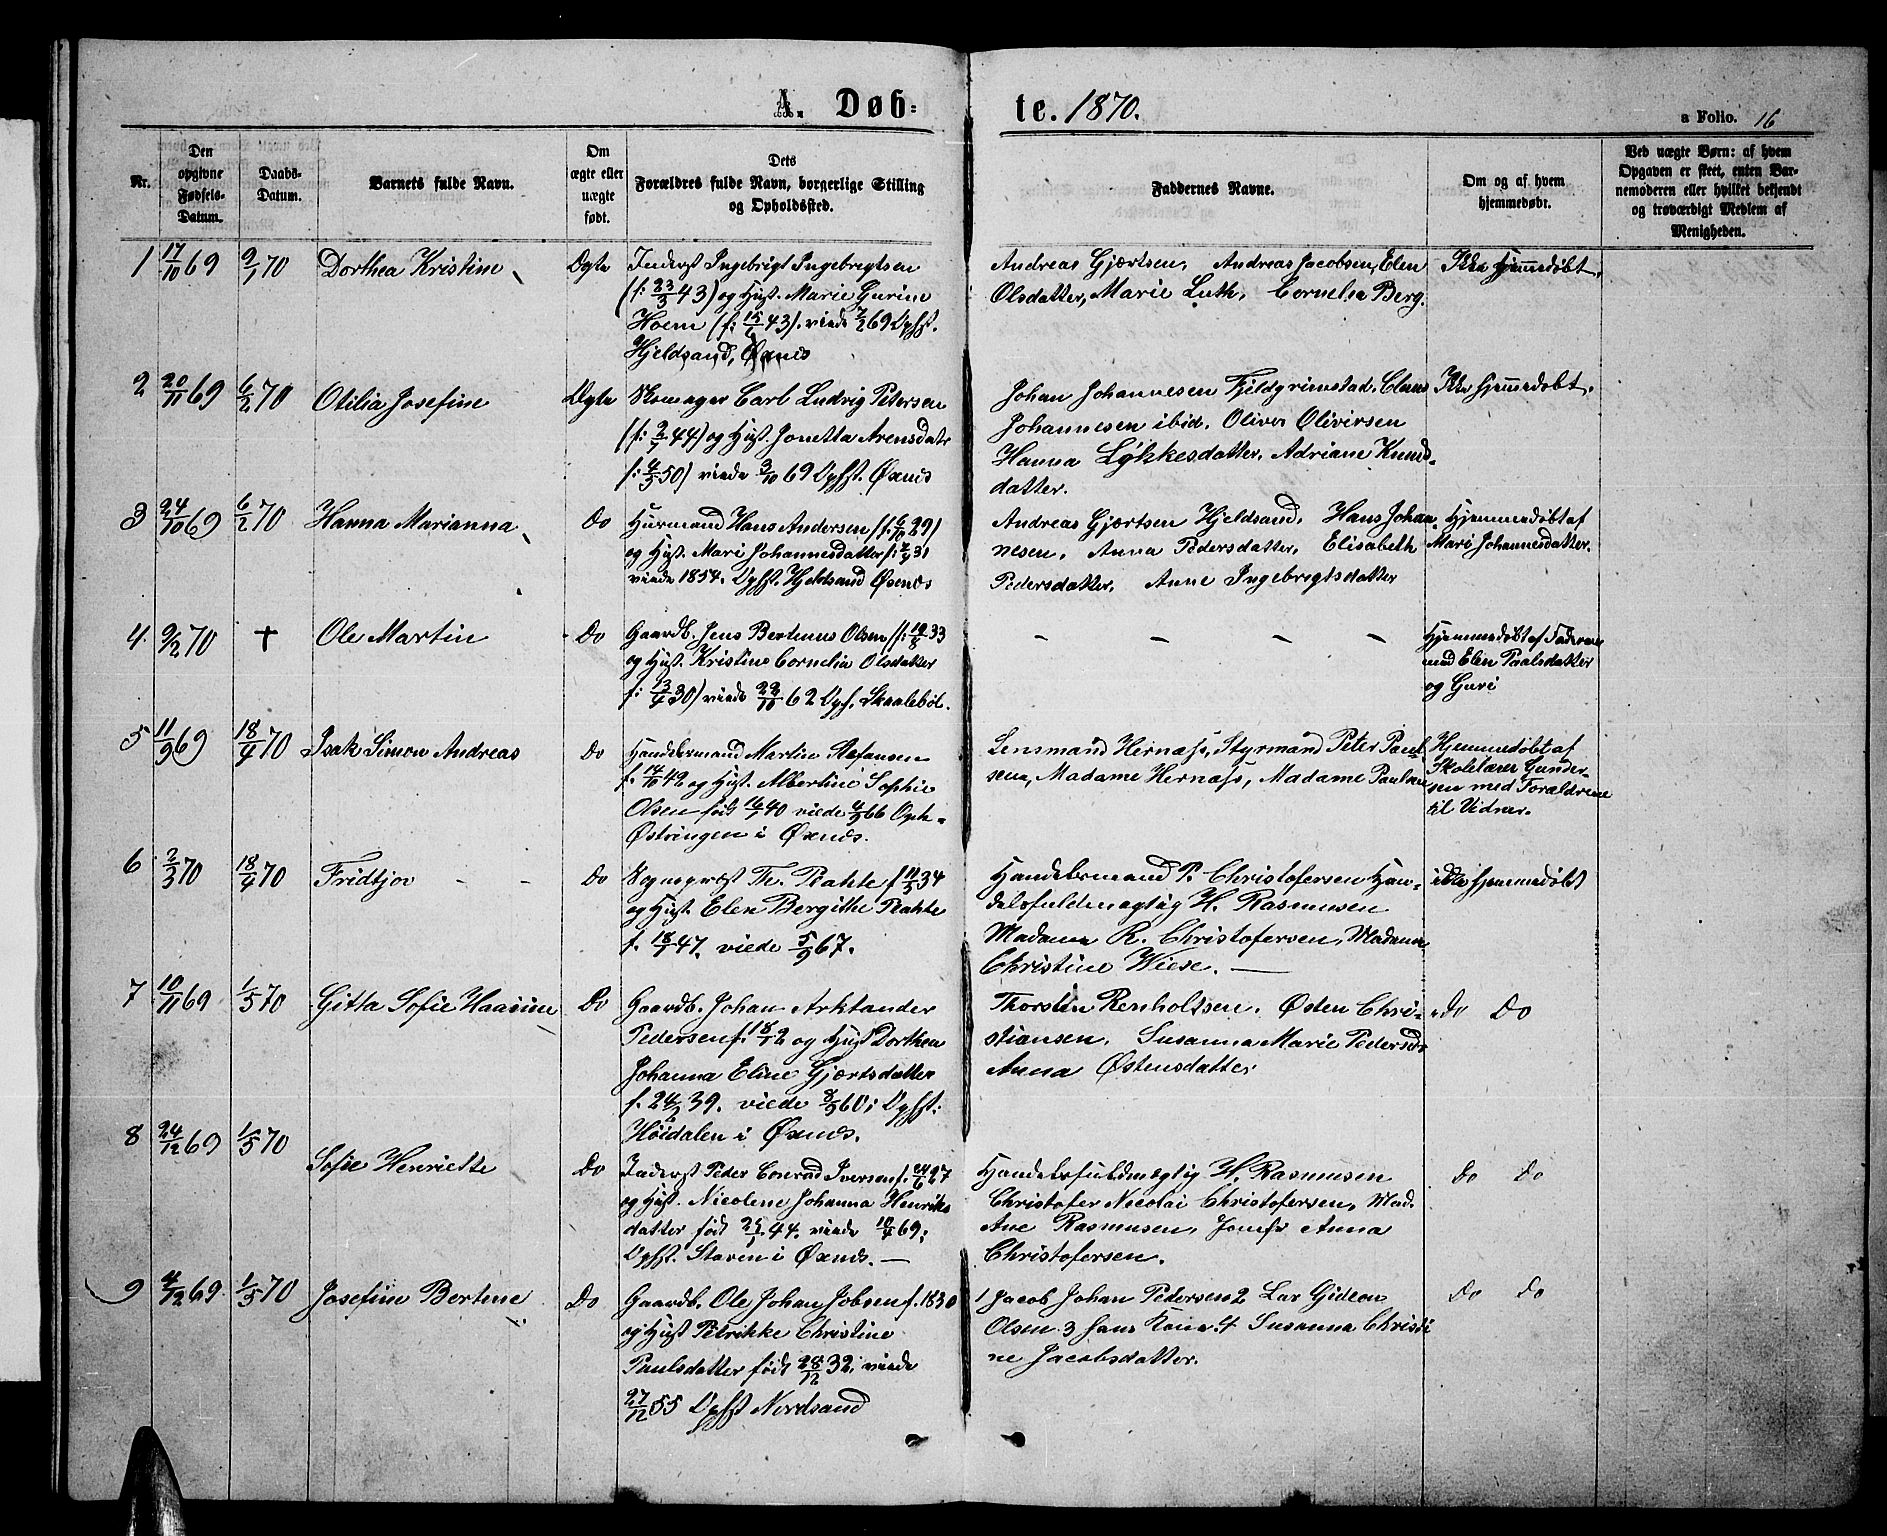 A. Døb=
te. 1870.
a Folio. 16
Nr.
Den opgivne Fødsels-Datum.
Daabs-Datum.
Barnets fulde Navn.
Om ægte eller uægte født.
Dets Forældres fulde Navn, borgerlige Stilling og Opholdssted.
Faddernes Navne.
Om og af hvem hjemmedøbt.
Ved uægte Børn: af hvem Opgaven er skeet, enten Barnemoderen eller hvilket bekjendt og troværdigt Medlem af Menigheden.
1 17/10 69 9/1 70 Dorthea Kristine Ægte
Inderst Ingebrigt Ingebrigtsen
(f: 23/3 43) og Hust. Marie Gurine
Hoem (f: 15/6 43). viede 7/2 69 Ophst.
Hjeldsand, Øxnes
Andreas Gjærtsen, Andreas Jacobsen, Elen
Olsdatter, Marie Luth, Cornelia Berg.
Ikke hjemmedøbt.
2 20/11 69 6/2 70 Otilia Josefine Ægte
Skomager Carl Ludvig Petersen
(f: 2/7 44) og Hust. Jonetta Arensdatr
f: 4/5 50) viede 3/10 69 Ophst. Øxnes
Johan Johannesen Fjeldgrimstad, Claus
Johannesen ibid. Oliver Olivirsen
Hanna Lykkesdatter, Adriane Knuds-
datter.
Ikke hjemmedøbt.
3 24/10 69 6/2 70 Hanna Marianna Do
Huusmand Hans Andersen (f: 6/10 29)
og Hust. Mari Johannesdatter f: 7/4 31
viede 1854. Ophst. Hjeldsand Øxnes
Andreas Gjærtsen Hjeldsand, Hans Johan-
nesen, Anna Pedersdatter, Elisabeth
Pedersdatter, Anne Ingebrigtsdatter
Hjemmedøbt af
Mari Johannesdatter.
4. 9/2 70 + Ole Martin Do
Gaardb. Jens Bertinus Olsen (f: 19/8 33
og Hust. Kristine Cornelia Olsdatter
f: 13/4 30) viede 22/10 62 Oph. Skaalebøl.
- - - -
Hjemmedøbt af Faderen
med Elen Paalsdatter
og Guri
5 11/9 69 18/4 70 Isak Simon Andreas Do
Handelsmand Martin Stefansen
f. 14/10 42 og Hust. Albertine Sophie
Olsen født 16/7 40 viede 4/9 66 Oph-
Østringen i Øxnes.
Lensmand Hernæss, Styrmand Peter Paul-
sen, Madame Hernæss, Madame Paulsen
Hjemmedøbt af
Skolelærer Gunder-
sen med Forældrene
til Vidner.
6 2/3 70 18/4 70 Fridtjov - - Do
Sognepræst Th. Prahte f 11/5 34
og Hust. Elen Bergithe Prahte
f. 18/1 47. viede 5/9 67.
Handelsmand P. Christofersen Han-
delsfuldmægtig H. Rasmusen
Madame R. Christofersen, Madame
Christine Wiese.
ikke hjemmedøbt
7 10/11 69 1/5 70 Gitta Sofie Haasine Do
Gaardb. Johan Arktander
Pedersen f. 18/1 2 og Hust Dorthea
Johanna Eline Gjærtsdatter
f. 24/2 39. viede 8/9 60; Ophst:
Høidalen i Øxnes.
Thorstin Renholtsen, Østen Chri-
stiansen, Susanna Marie Pedersd.
Anna Østensdatter
Do Do
8 24/12 69 1/5 70 Sofie Henriette Do
Inderst Peder Conrad Iversen f. 24/6 27
og Hust. Nicolene Johanna Henriks
datter født 25/1 44. viede 10/4 69;
Ophst. Staven i Øxnes.
Handelsfuldmægtig H. Rasmusen
Christofer Nicolai Christofersen, Mad.
Ane Rasmusen, Jomfr Anna
Christofersen.
Do Do
9 4/12 69. 1/5 70 Josefine Bertine Do
Gaardb. Ole Johan Jobsen f. 1830
og Hust Petrikke Christine
Paulsdatter født 28/12 32, viede
27/12 55 Ophst Nordsand
1 Jacob Johan Pedersen 2 Lar Gideon
Olsen 3 Jens 4 Susanna Christi
ne Jacobsdatter.
Do Do